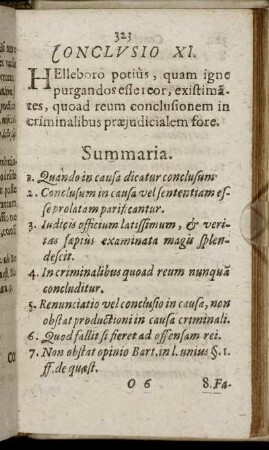 323
CONCLVSIO XI.
HElleboro potiùs, quam igne
purgandos esse reor, existimã-
tes, quoad reum conclusionem in
criminalibus præjudicialem fore.
Summaria.
1. Quando in causa dicatur conclusum.
2. Conclusum in causa vel sententiam es-
se prolatam parificantur.
3. Iudicis officium latissimum, & veri-
tas sæpius examinata magis splen-
descit.
4. In criminalibus quoad reum nunquã
concluditur.
5. Renunciatio vel conclusio in causa, non
obstat productioni in causa criminali.
6. Quod fallit si fieret ad offensam rei.
7. Non obstat opinio Bart. in l. unius §. 1.
ff. de quæst.
O 6 8. Fa-